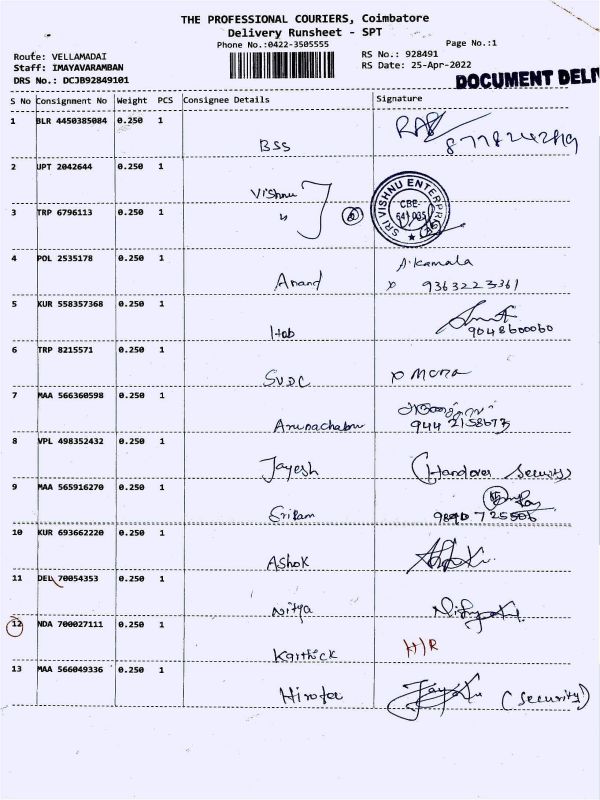 THE PROFESSIONAL COURIERS, Coimbatore
Delivery Runsheet - SPT
Phone No.:0422-3505555
Page No.:1
Route: VELLAMADAI
RS No.: 928491
Staff: IMAYAVARAMBAN
RS Date: 25-Apr-2022
DRS No.: DCJB92849101
DOCUMENT DELI
S No Consignment No Weight PCS Consignee Details Signature
1 BLR 4450385084 0.250 1
BSS
2 UPT 2042644 0.250 1
Vishnu
SRI VISHNU ENTERPRISES
CBE-
641 035
3 TRP 6796113 0.250 1
4 POL 2535178 0.250 1
Anand
A. Kamala
9363223361
5 KUR 558357368 0.250 1
Hob
9048600060
6 TRP 8215571 0.250 1
SVDC
7 MAA 566360598 0.250 1
Arunachalam
944 2158673
8 VPL 498352432 0.250 1
Jayesh
(Handover Security)
9 MAA 565916270 0.250 1
Sriram
10 KUR 693662220 0.250 1
Ashok
11 DEL 70054353 0.250 1
Nitya
12 NDA 700027111 0.250 1
Karthick
H/R
13 MAA 566049336 0.250 1
(Security)